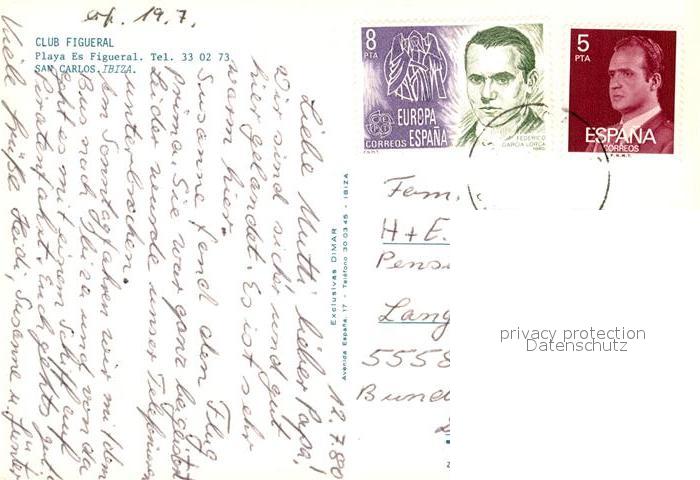 erh. 19.7.
CLUB FIGUERAL
Playa Es Figueral. Tel. 33 02 73
SAN CARLOS. IBIZA.
12.7.80
Liebe Mutti, lieber Papa!
Wir sind sicher und gut
hier gelandet. Es ist sehr
warm hier.
Susanne fand den Flug
prima. Sie war ganz begeistert
Leider wurde unser Telefonieren
unterbrochen.
Am Sonntag fahren wir mit dem
Bus nach Ibiza und von da
geht es mit einem Schiff auf
Piratenfahrt. Euch geht's gut!
Viele Grüße Heidi, Susanne u. Günter
Exclusivas DIMAR
Avenida España, 17 - Teléfono 30 03 45 - IBIZA
8
PTA
EUROPA
ESPAÑA
CORREOS
FEDERICO
GARCIA LORCA
1980
F.N.M.T.
5
PTA
ESPAÑA
CORREOS
F.N.M.T.
Fam.
H+E.
Pens
Lang
5558
Bund
privacy protection
Datenschutz